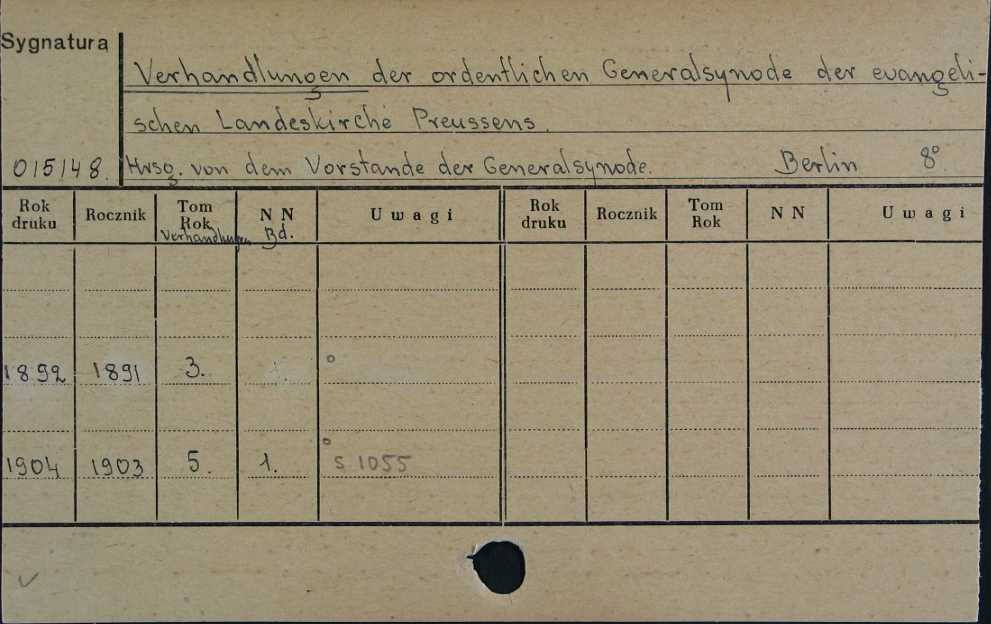 Sygnatura
Verhandlungen der ordentlichen Generalsynode der evangeli-
schen Landeskirche Preussens.
015148. Hrsg. von dem Vorstande der Generalsynode. Berlin 8°
Rok druku Rocznik Tom Rok Verhandlungen N N Bd. Uwagi Rok druku Rocznik Tom Rok N N Uwagi
1892 1891 3. °
1904 1903 5. 1. ° S 1055